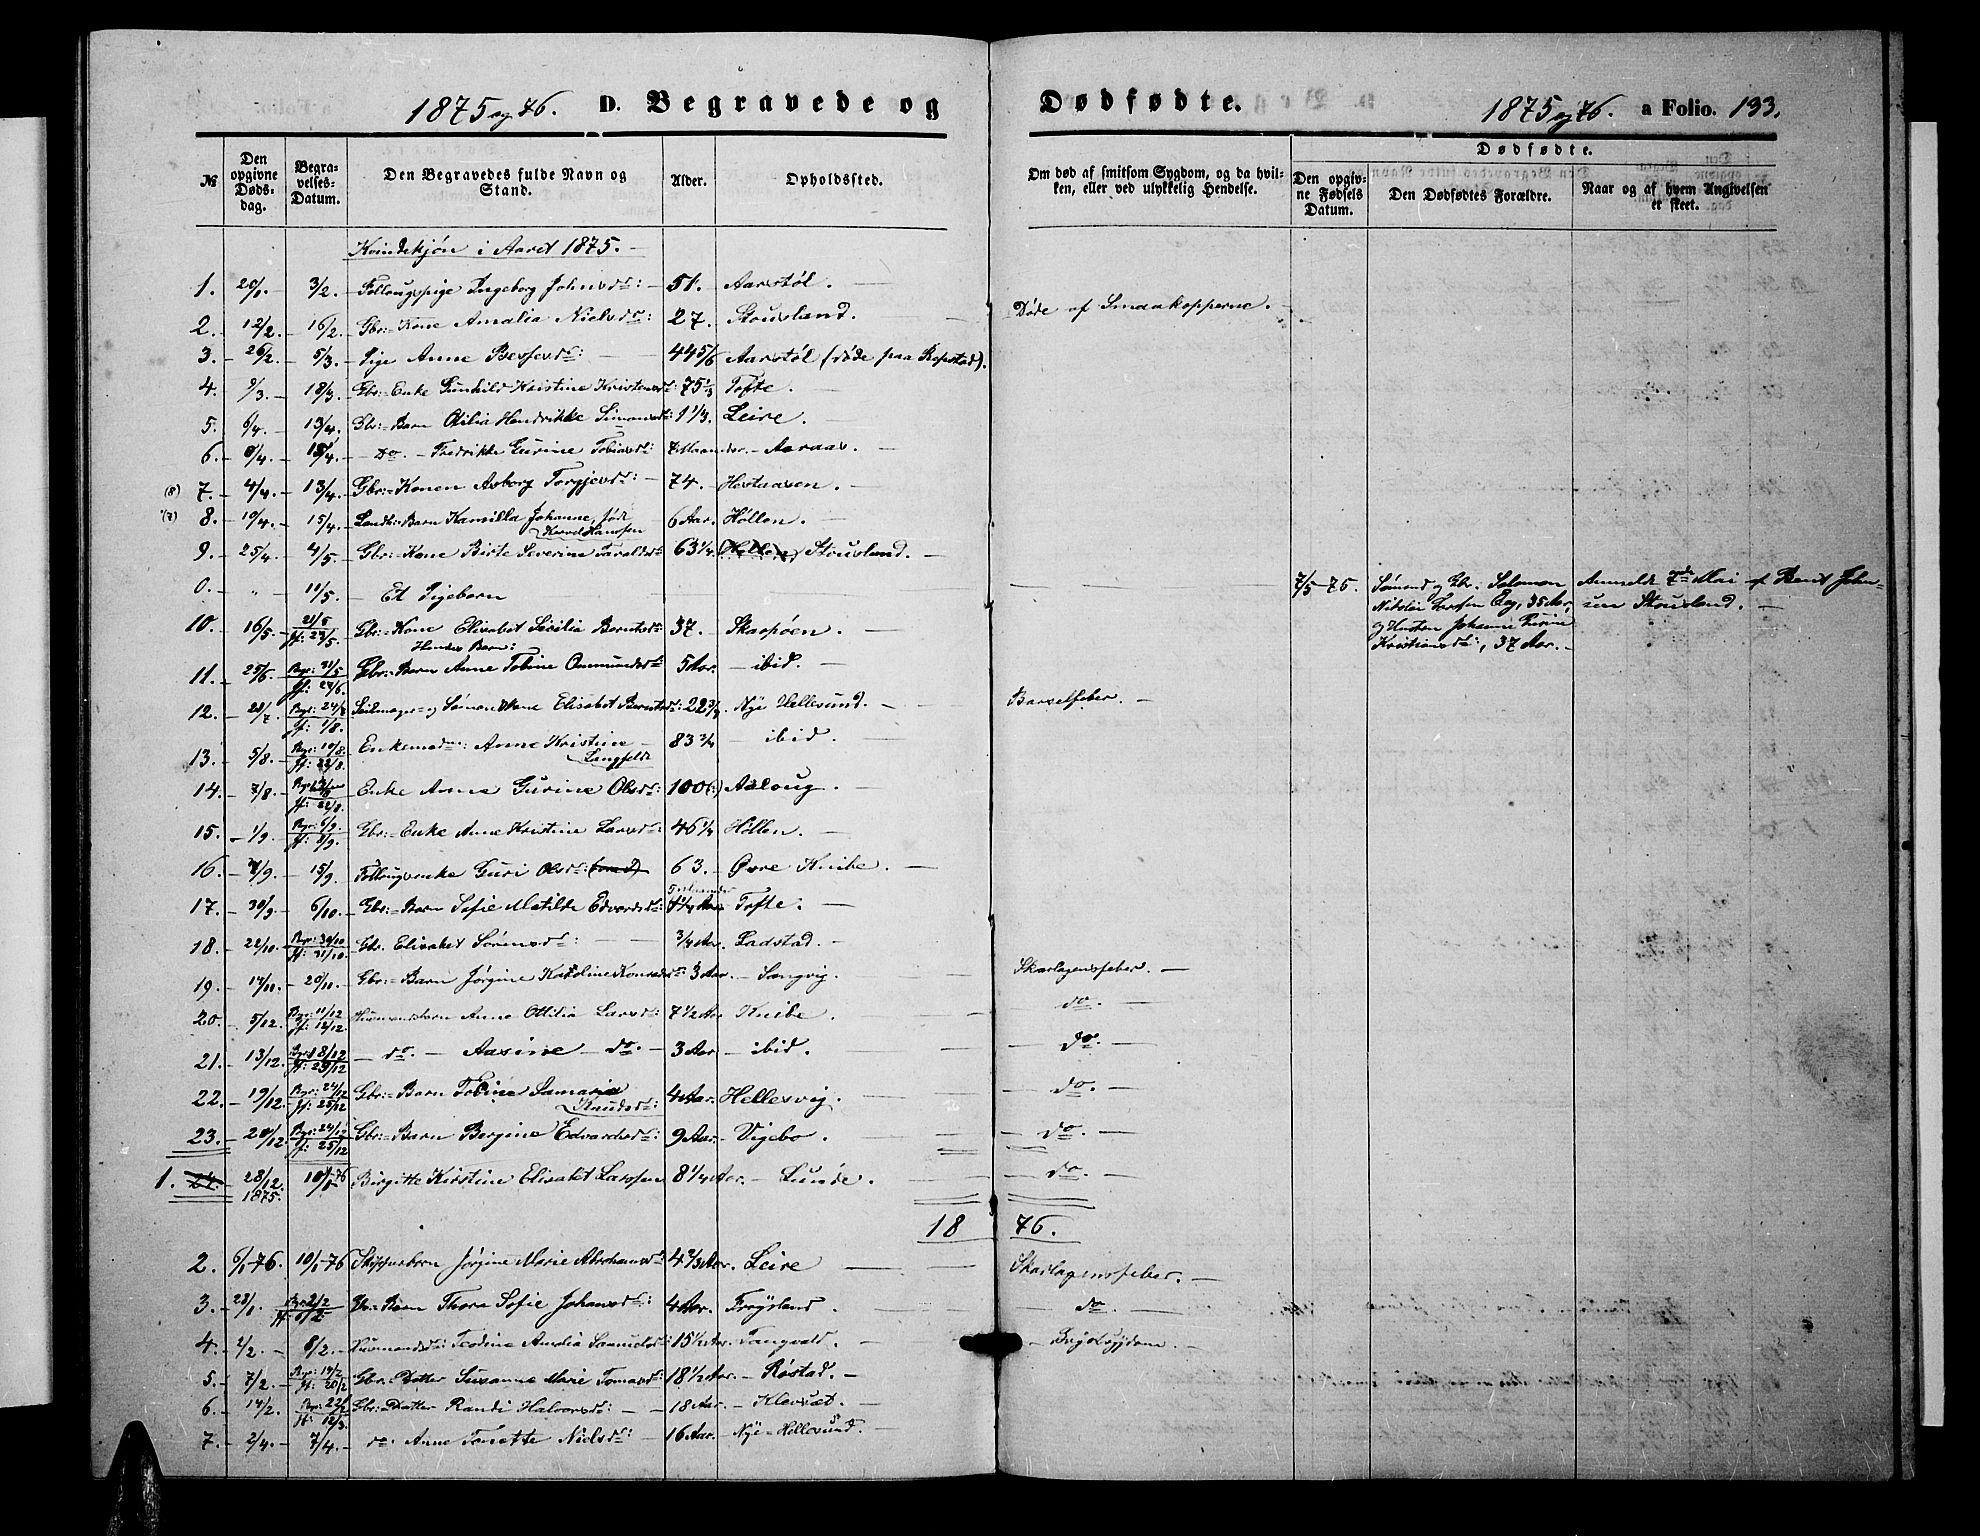 1875 og 76. D. Begravede og Dødfødte. 1875 og 76. a Folio. 133.
№
Den opgivne Døds-dag.
Begra-velses-Datum.
Den Begravedes fulde Navn og Stand.
Alder.
Opholdssted.
Om død af smitsom Sygdom, og da hvil-ken, eller ved ulykkelig Hendelse.
Dødfødte.
Den opgiv-ne Fødsels Datum.
Den Dødfødtes Forældre.
Naar og af hvem Angivelsen er skeet.
Kvindekjøn i Aaret 1875.
1. 20/1. 3/2. Follougspige Ingeborg Johnsdr: 51. Aarstøl.
2. 12/2. 16/2. Gbr: Kone Amalia Nielsdr: 27. Stousland. Døde af Smaakopperne.
3. 26/2. 5/3. Pige Anne Berfesdr: 44 5/6 Aarstøl (døde paa Repstad).
4. 9/3. 18/3. Gbr: Enke Gunhild Kristine Kristensdr: 75 1/3 Tofte.
5. 6/4. 13/4. Gbr: Barn Otilia Hendrikke Simonsdr: 1 1/3. Leire.
6. 8/4. 15/4. do. Fredrikke Gurine Tobiasdr: 7 Maaneder. Aaraas.
(8) 7. 4/4. 13/4. Gbr: Konen Asborg Torgjesdr: 74. Hestaasen.
(7) 8. 10/4. 15/4. Landh: Barn Kamilla Johanne, fød
Hansen 6 Aar. Høllen.
9. 25/4. 4/5. Gbr: Kone Birte Severine Taraldsdr: 63 1/4 (Høllen) Stousland.
0. " 11/5. Et Pigebarn 7/5-75. Sømand og Gbr. Salomon Anmeldt 7de Mai af Bent John-
Nikolai Larsen Eeg, 35 Aar, sen Stousland.
og Hustru Johanne Gurine
Kristiansdr:, 37 Aar.
10. 16/5. 21/5 Jf: 23/5. Gbr: Kone Elisabet Sesilia Berntsdr: 37. Skarpøen.
Hendes Barn:
11. 25/6. Begr: 31/5 Jf: 27/6. Gbr: Barn Anne Tobine Ommundsdr: 5 Aar. ibid.
12. 28/7. Begr: 24/8 Jf: 1/8. Seilmager- og Sømandskone Elisabet Berntsdr: 22 3/4 Nye Hellesund. Barselfeber.
13. 5/8. Begr: 10/8. Jf: 22/8. Enkemadm: Anne Kristine
Langfeldt 83 3/4 ibid.
14. 7/8. Jf: 22/8. Enke Anne Gurine Olsdr: 100 (:) Aaloug.
15. 1/9. Begr: 6/9. Jf: 8/9. Gbr: Enke Anne Kristine Larsdr: 46 1/4 Høllen.
16. 7/9. 15/9. Follougsenke Guri Olsdr: 63. Øvre Knibe.
17. 30/9. 6/10. Gbr: Barn Sofie Matilde Edvardsdr: Tofte.
18. 22/10. Begr: 30/10 Jf: 31/10. Gbr. Elisabet Sørensdr: 3/4 Aar. Ladstad.
19. 14/11. 20/11. Gbr: Barn Jørgine Karoline Konradsdr: 3 Aar. Langvig. Skarlagensfeber.
20. 5/12. Begr: 11/12 Jf: 12/12. Husmandsbarn Anne Ottilia Larsdr: 7 1/2 Aar Knibe. do.
21. 13/12. Begr: 18/12 Jf: 25/12 do. Aasine do. 3 Aar ibid. do.
22. 19/12. Begr: 24/12 Jf: 25/12 Gbr: Barn Tobine Samaria
Knudsdr: 4 Aar. Hellesvig. do.
23. 20/12. Begr: 24/12 Jf: 25/12 Gbr: Barn Bergine Edvardsdr: 9 Aar. Vigebo. do.
1. 24. 28/12. 1875. 10/1-76 Birgitte Kirstine Elisabet Larssen 8 1/4 Aar. Lunde. do.
18 76.
2. 6/1-76. 10/1-76 Skipperbarn Jørgine Marie Abrahamsdr: 4 2/3 Aar. Leire Skarlagensfeber.
3. 28/1. Begr: 2/2 Jf: 6/2 Gbr: Barn Thora Sofie Johansdr: 4 Aar. Frøysland. do.
4. 2/2. 8/2. Husmandsdr: Teodine Amalia Samuelsdr: 15 1/2 Aar. Tangvald. Brystsygdom.
5. 7/2. Begr: 19/2 Jf: 20/2 Gbr: Datter Susanne Marie Tomasdr: 18 1/2 Aar. Røstad.
6. 14/2. Begr: 22/2 Jf: 12/3. Gbr: Datter Randi Halvorsdr: 18 Aar. Klevset.
7. 2/4. 7/4. do: Anne Tonette Nielsdr: 16 Aar. Nye-Hellesund.